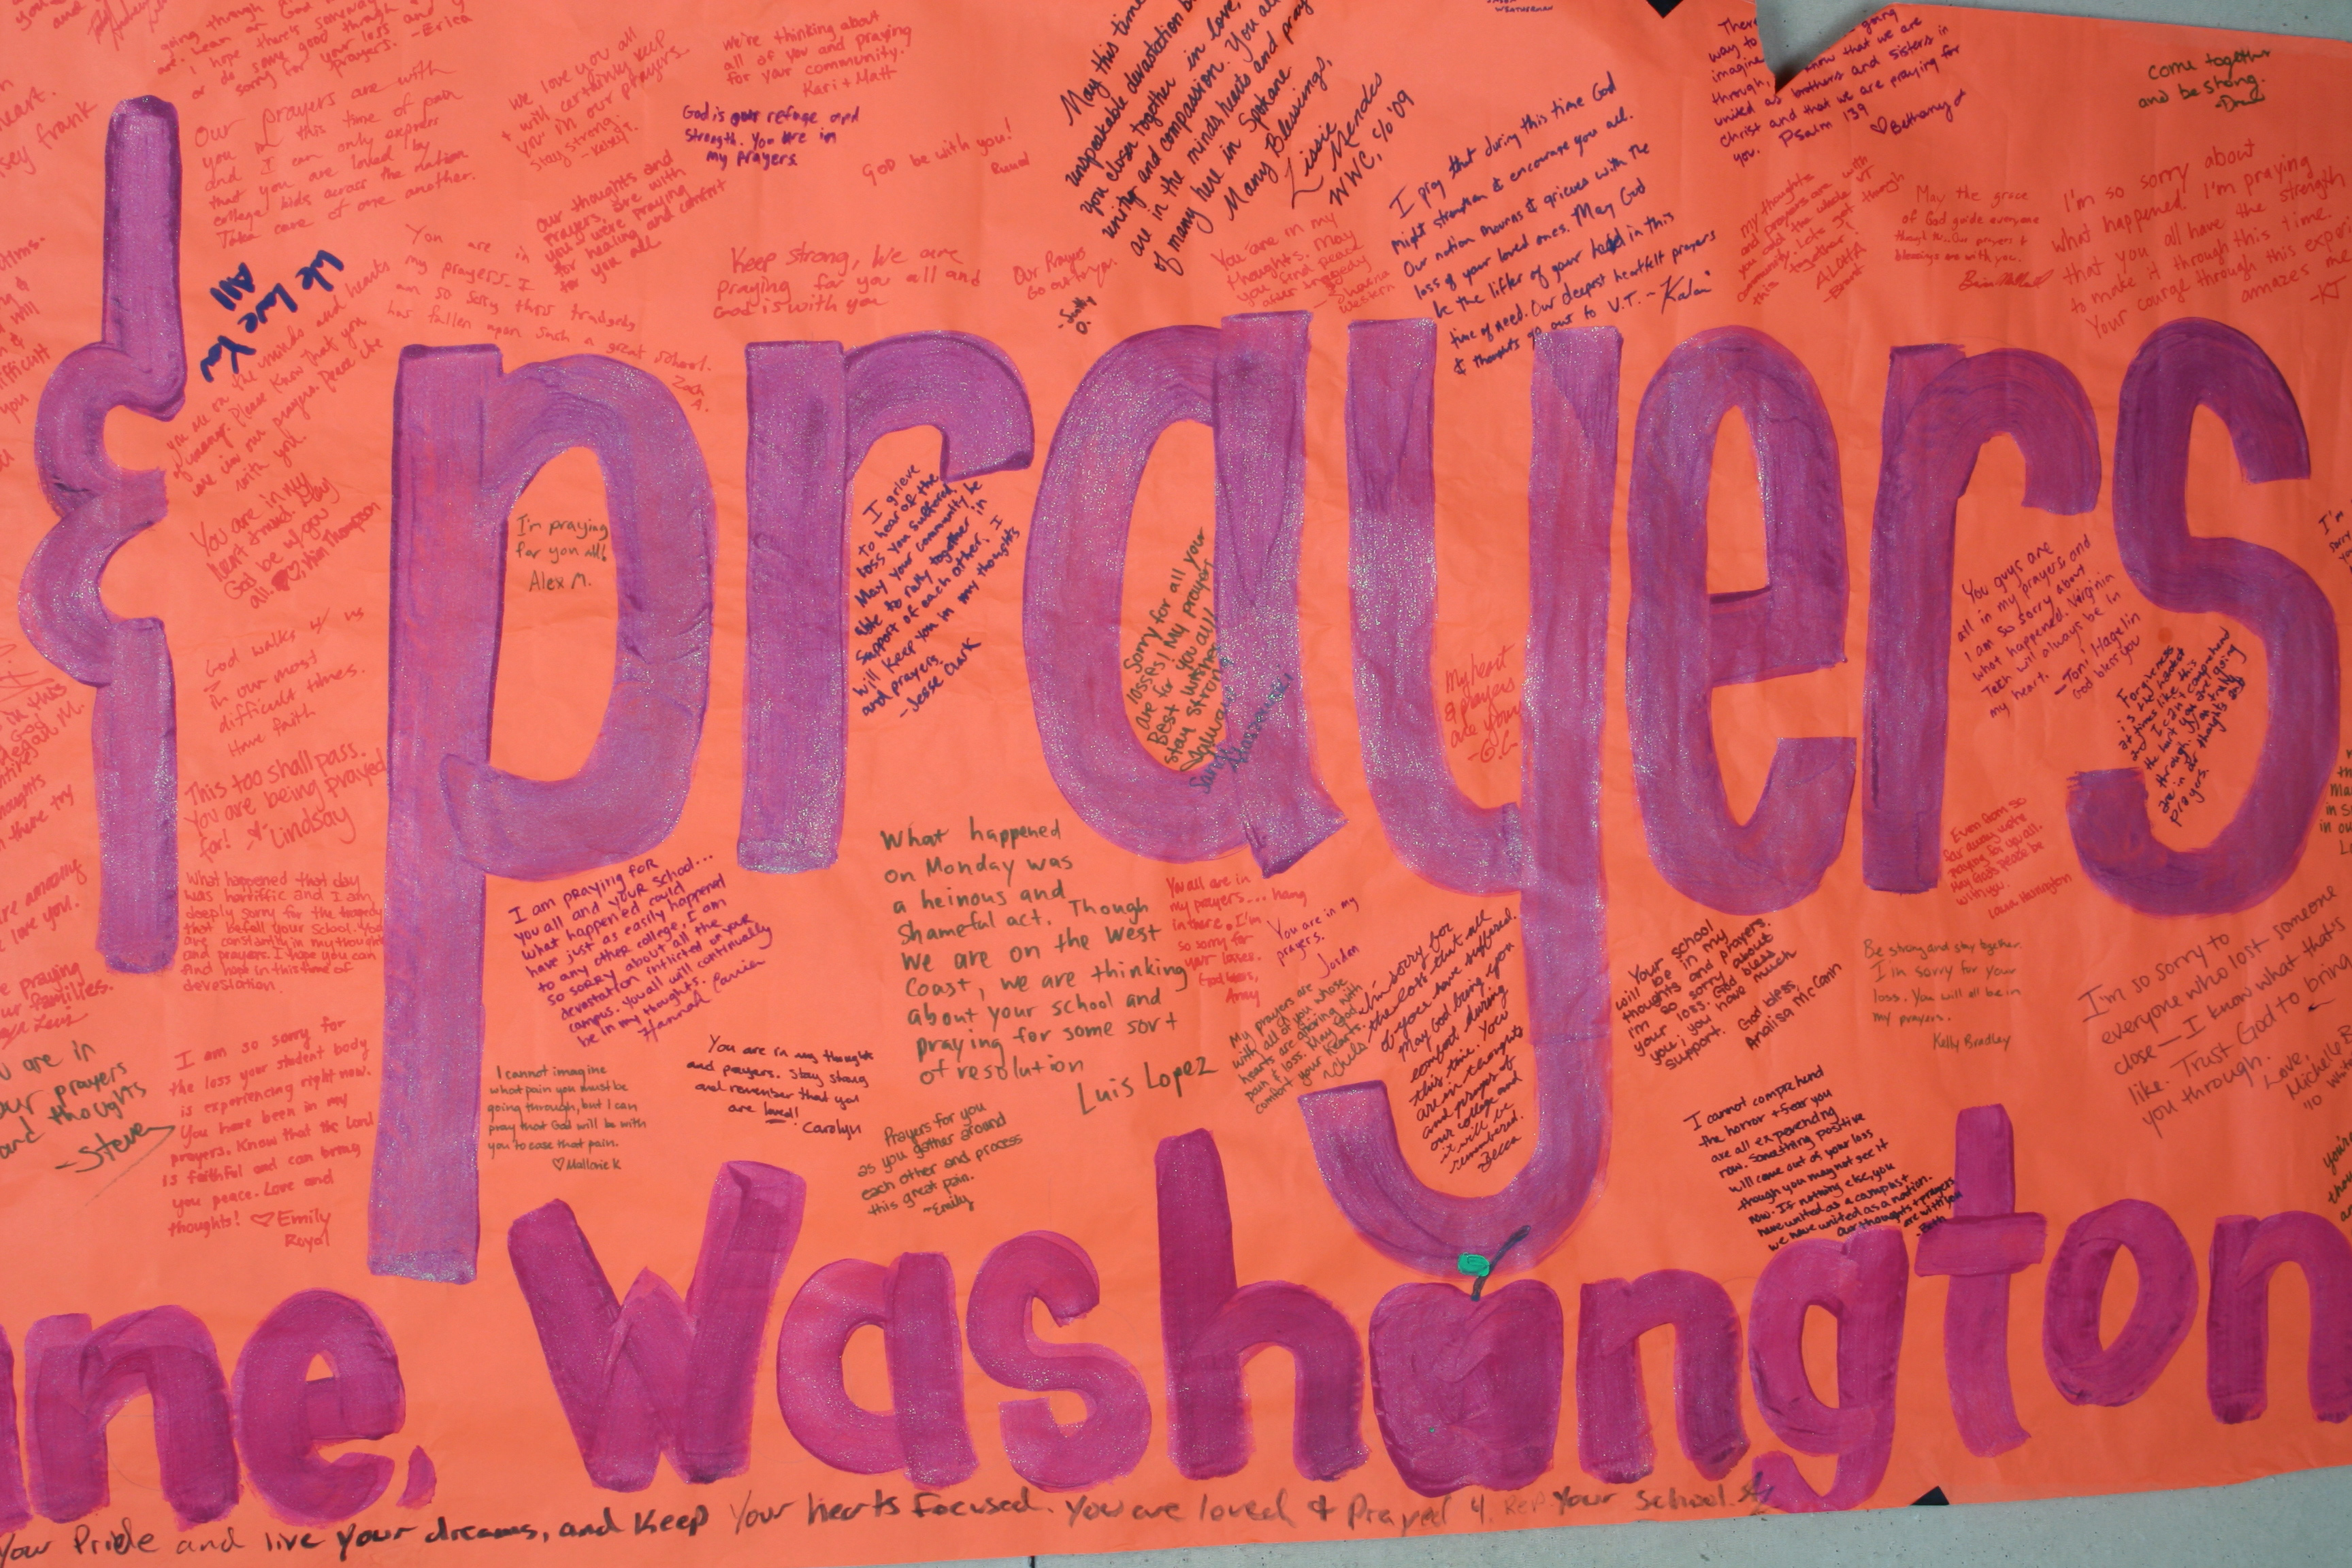 going through
or do some good through
sorry for your loss
prayers. -Erica
Our prayers are with
you in this time of pain
and I can only express
that you are loved by
college kids across the nation
Take care of one another.
we love you all
+ will certainly keep
you in our prayers.
Stay strong.
-Kelsey T.
We're thinking about
all of you and praying
for your community.
Kari + Matt
God is our refuge and
strength. You are in
my prayers
GOD be with you!
Our thoughts and
prayers are with
you. We're praying
for healing and comfort
for you all
May this time
unspeakable devastation
you closer together in love,
unity and compassion. You all
are in the minds, hearts and
of many here in Spokane
Many Blessings,
Lissie
Mendes
WWC, c/o '09
I pray that during this time God
might strengthen & encourage you all.
Our nation mourns & grieves with the
loss of your loved ones. May God
be the lifter of your head in this
time of need. Our deepest heartfelt prayers
& thoughts go out to V.T. ~Kalai
way to
imagine
through, know that we are
united as brothers and sisters in
Christ and that we are praying for
you. Psalm 139
♡Bethany
come together
and be strong.
my thoughts
and prayers are with
you and the whole VT
community. Lets get through
this together!
ALOHA
-Brant
May the grace
of God guide everyone
through this. Our prayers &
blessings are with you.
I'm so sorry about
what happened. I'm praying
that you all have the strength
to make it through this time.
Your courge through this
amazes me
-KT
We Love You
All
You are in
my prayers. I
am so sorry this tradgedy
has fallen upon such a great school.
Zach
A.
Keep strong, We are
praying for you all and
God is with you
Our Prayers
Go out to you
You are in my
thoughts. May
you find peace
after tragedy
-Shauna
Western
you are on the minds and hearts
of many. Please know that you
are in our prayers. Peace be
with you.
You are in my
heart & mind. May
God be w/ you
all. ♡, Kim Thompson
&
prayers
I'm praying
for you all!
Alex M.
I grieve
to hear of the
loss you suffered.
May your community be
able to rally together in
support of each other. I
will keep you in my thoughts
and prayers.
-Jesse Clark
Sorry for all your
losses! My prayers
are for you all!
Best wishes
Stay strong
always
My heart
& prayers
are yours
-G.C.
You guys are
all in my prayers, and
I am so sorry about
what happened. Virginia
Tech will always be in
my heart.
-Toni Hagelin
God bless you
Forgiveness
is the hardest
at times like this
and I can't comprehend
the hurt you are going
through. You truly
are in our thoughts and
prayers.
God walks w/ us
in our most
difficult times.
Have faith
This too shall pass.
You are being prayed
for! Lindsay
What happened that day
was horriffic and I am
deeply sorry for the tragedy
that befell your school. You
are constantly in my thoughts
and prayers. I hope you can
find hope in this time of
devestation.
I am praying for
you all and your school...
what happened could
have just as easily happened
to any other college, I am
so sorry about all the
devastation inflicted on your
campus. You all will continually
be in my thoughts.
What happened
on Monday was
a heinous and
shameful act. Though
we are on the West
Coast, we are thinking
about your school and
praying for some sort
of resolution
Luis Lopez
You all are in
my prayers... hang
in there. I'm
so sorry for
your losses.
God bless,
Amy
You are in my
prayers.
Jorden
My prayers are
with all of you whose
hearts are aching with
pain & loss. May God
comfort your hearts.
~Chels
I'm sorry for
the loss that all
of you have suffered.
May God bring you
comfort during
this time. You
are in thoughts
and prayers of
our college and
it will be
remembered.
Becca
Your school
will be in my
thoughts and prayers.
I'm so sorry about
your loss. God bless
you; you have much
support.
God bless,
Analisa McCann
Even from so
far away we're
praying for you all.
May God's peace be
with you.
Laura Harrington
Be strong and stay together.
I'm sorry for your
loss. You will all be in
my prayers.
Kelly Bradley
I'm so sorry to
everyone who lost someone
close - I know what that's
like. Trust God to bring
you through.
Love,
Michelle
I am so sorry for
the loss your student body
is experiencing right now.
You have been in my
prayers. Know that the Lord
is faithful and can bring
you peace. Love and
thoughts! ♡ Emily
Royal
our prayers
and thoughts
-Steven
I cannot imagine
what pain you must be
going through, but I can
pray that God will be with
you to ease that pain.
♡ Mallorie K
You are in my thoughts
and prayers. Stay strong
and remember that you
are loved!
Carolyn
Prayers for you
as you gather around
each other and process
this great pain.
~Emily
I cannot comprehend
the horror + fear you
are all experiencing
now. Something positive
will come out of your loss
though you may not see it
now. If nothing else, you
have united as a campus +
we have united as a nation.
Our thoughts + prayers
are with you
-Beth
ane, Washington
Your Pride and live Your dreams, and Keep Your hearts Focused. You are loved & Prayed 4. Rep. Your School.